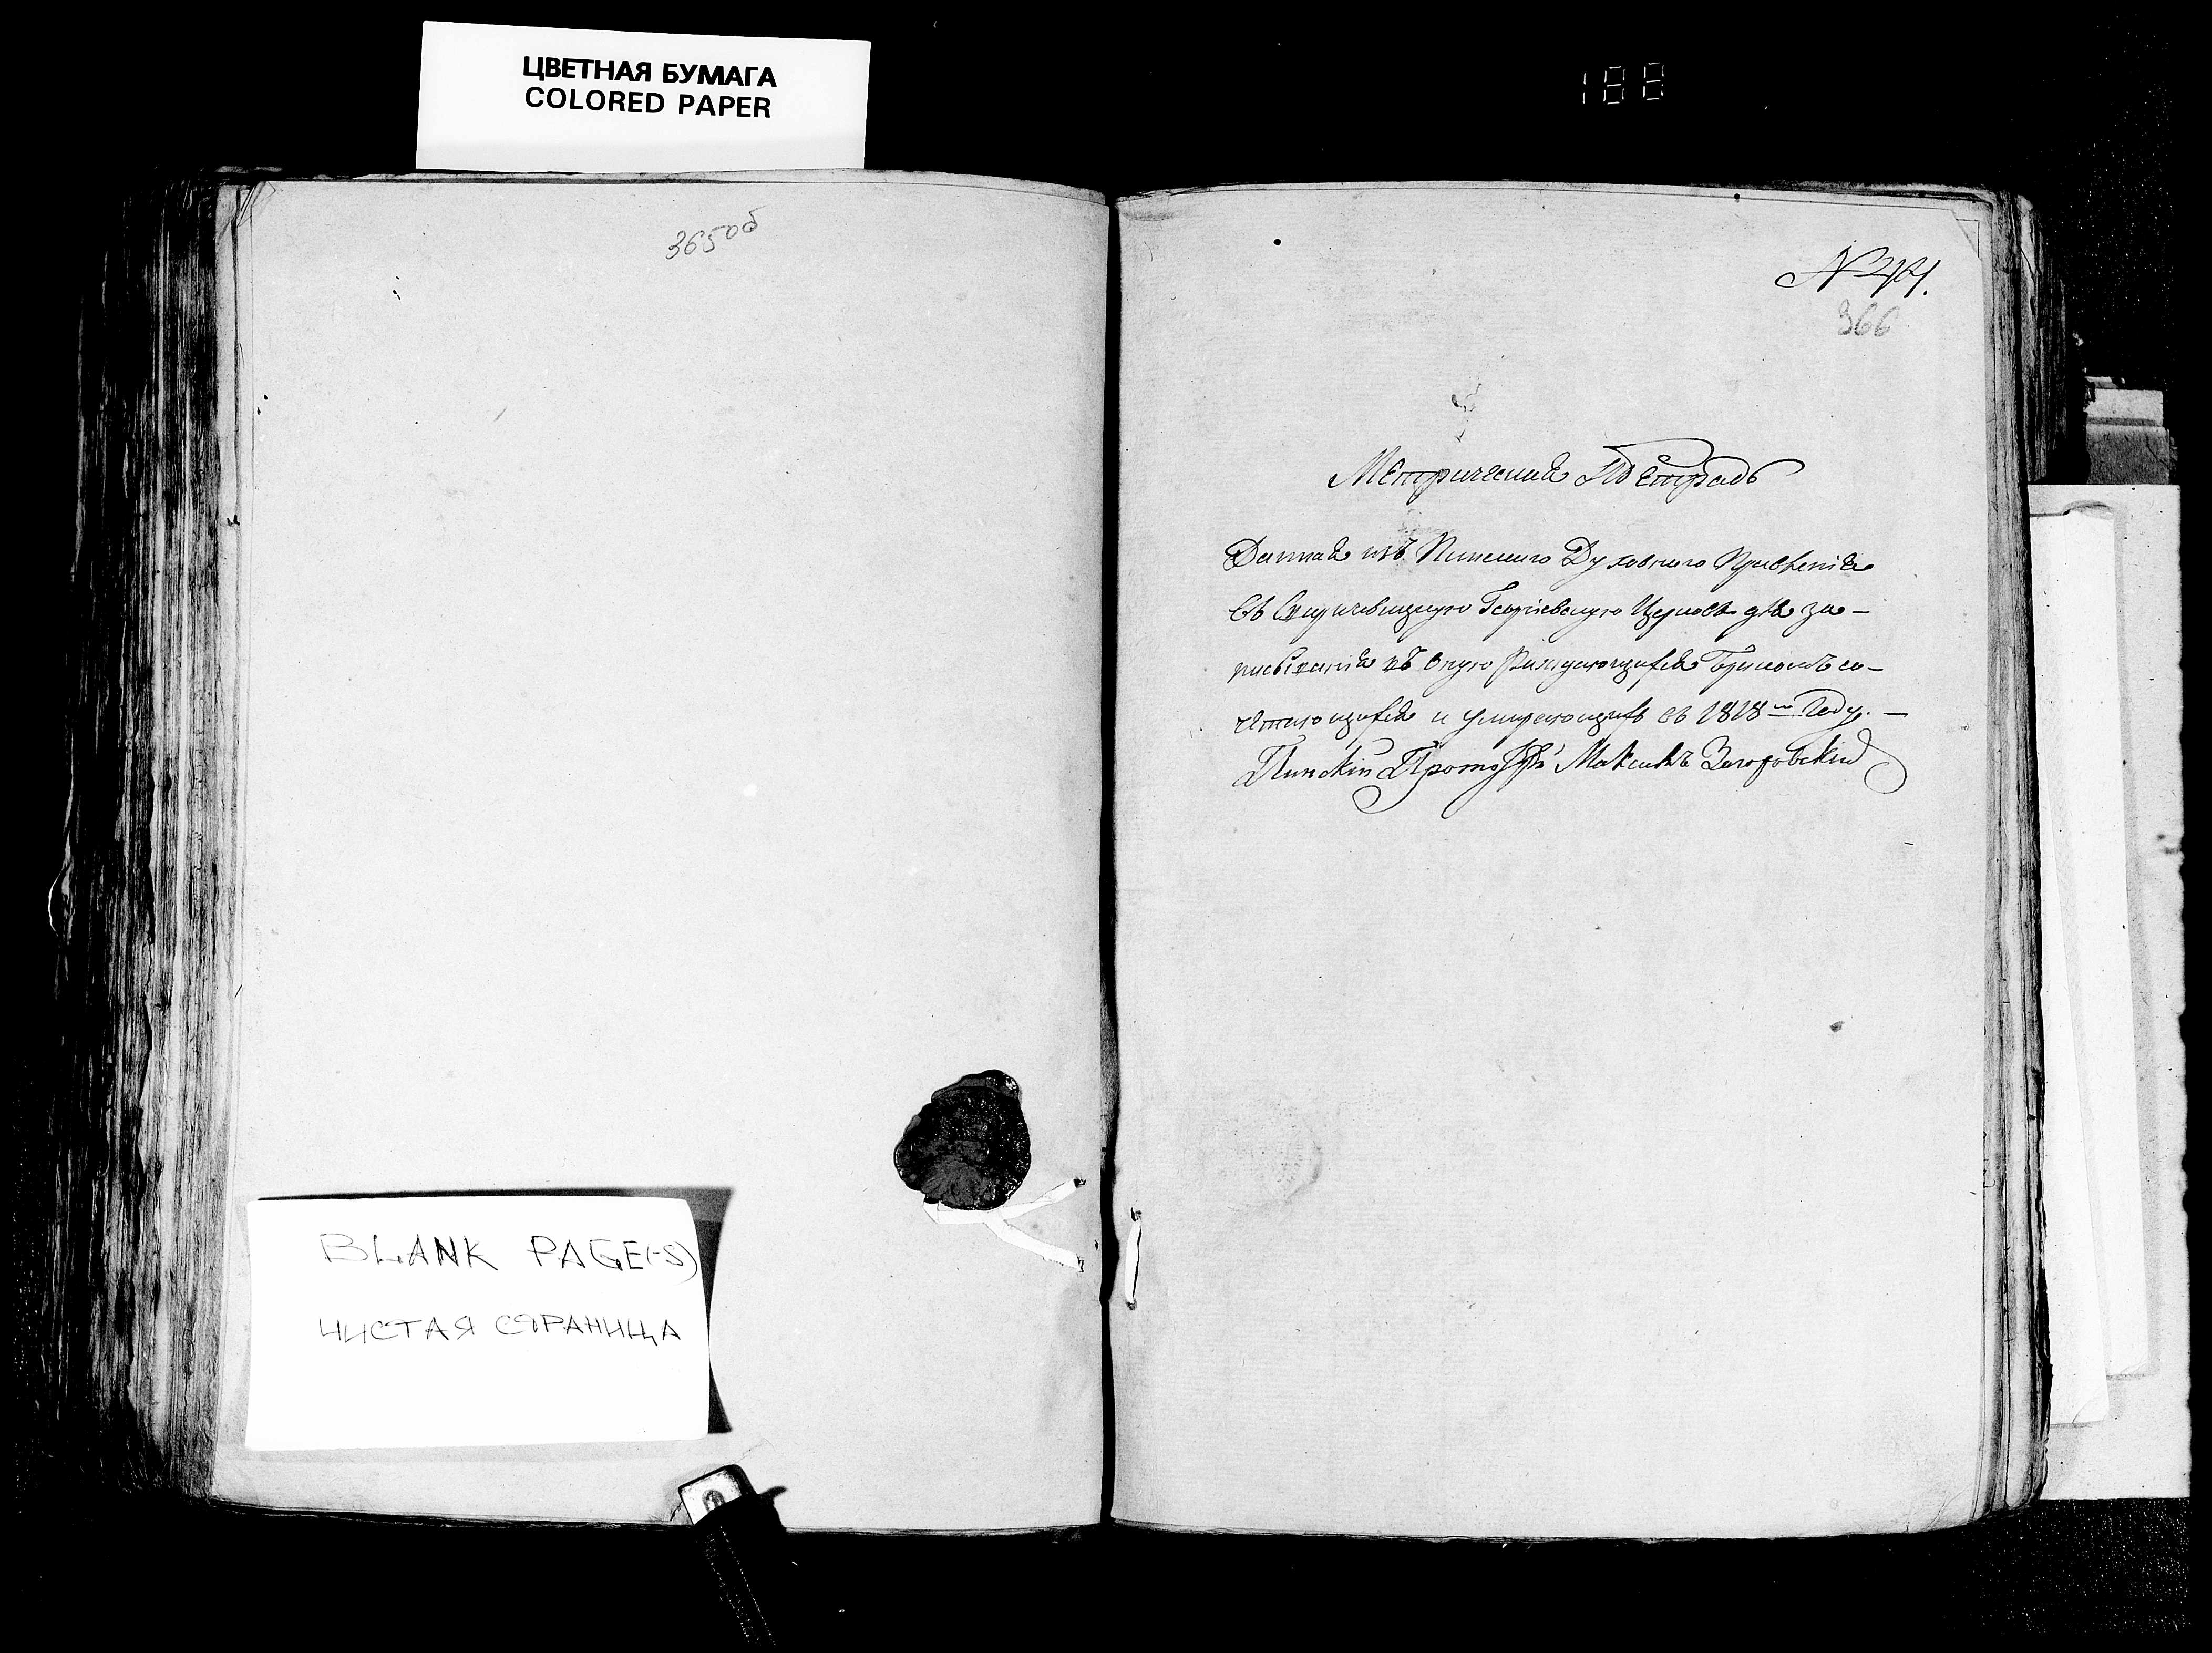 ЦВЕТНАЯ БУМАГА
COLORED PAPER
188
365об
366
Метрическая Тетрадь
Данная изъ Пинского Духовного Правленія
въ Георгіевскую Церковь для за-
писыванія въ оную Раждающихся Бракомъ со-
четающихся и умирающихъ въ 1818м Году. —
Пинскій Протоіерей Максимъ Загоровскій
BLANK PAGE(-S)
ЧИСТАЯ СТРАНИЦА